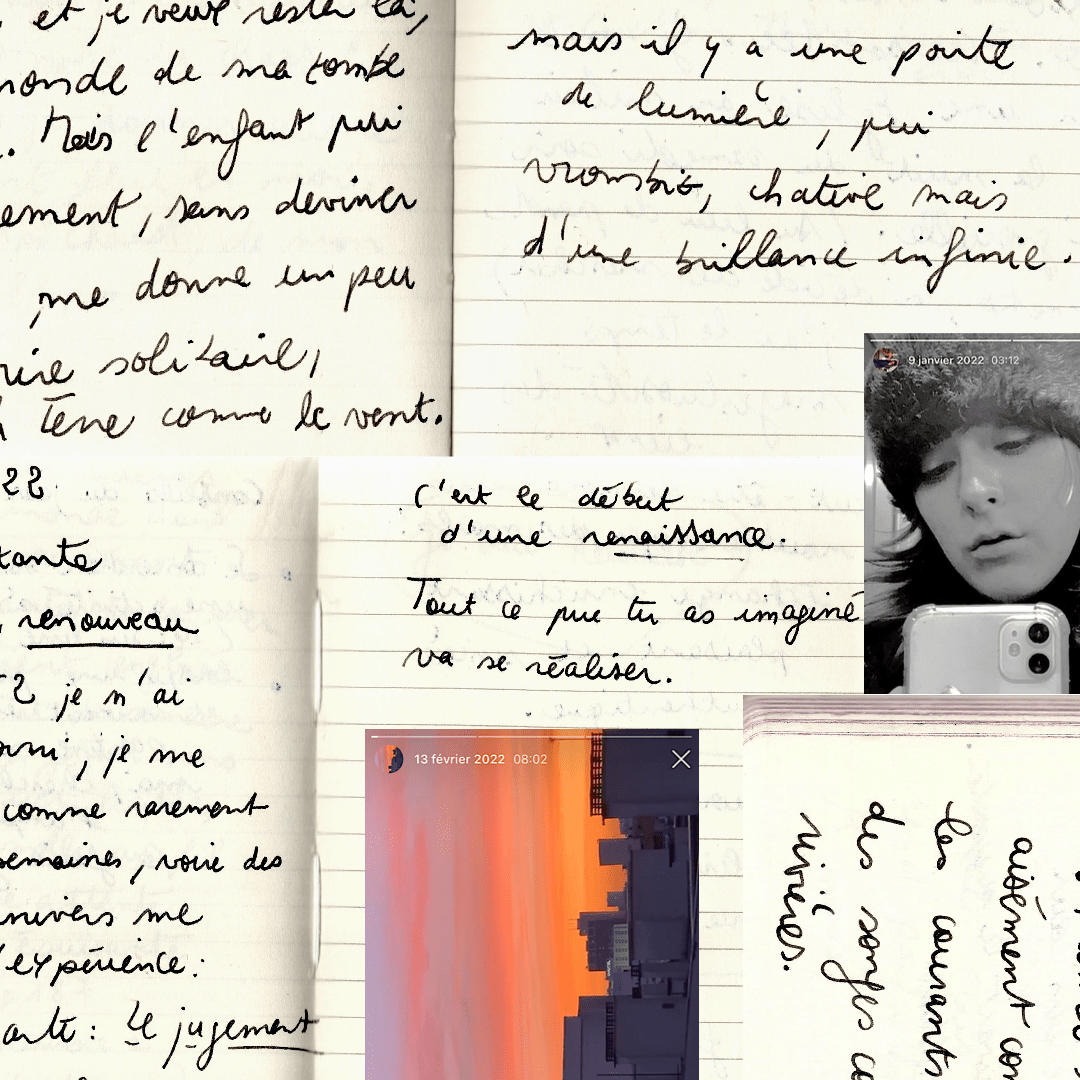 et je veux rester là,
monde de ma tombe
. Mais l'enfant qui
ement, sans deviner
, me donne un peu
rire solitaire,
Terre comme le vent.
mais il y a une pointe
de lumière, qui
vrombit, chétive mais
d'une brillance infinie.
9 janvier 2022 03:12
22.
tante
, renouveau
je n'ai
, je me
comme rarement
semaines, voire des
univers me
l'expérience:
arte: Le jugement
C'est le début
d'une renaissance.
Tout ce que tu as imaginé
va se réaliser.
13 février 2022 08:02
aisément co
les courants
des songes co
rivières.